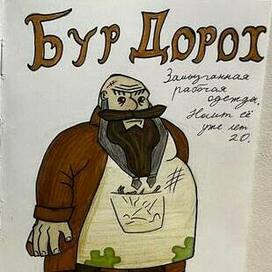 Бур Дорох
Замызганная
рабочая
одежда.
Носит её
уже лет
20.